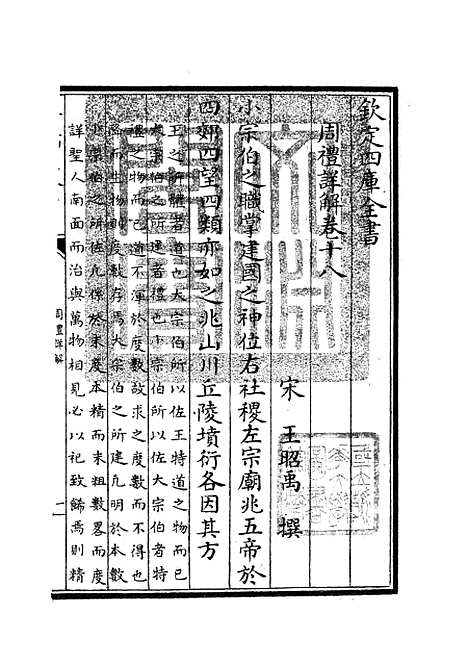 欽定四庫全書
周禮詳解卷十八
宋 王昭禹 撰
小宗伯之職掌建國之神位右社稷左宗廟兆五帝於
四郊四望四類亦如之兆山川丘陵墳衍各因其方
王之所體者道也大宗伯所以佐王特道之物而已
大宗伯之所建者禮也小宗伯所以佐大宗伯者特
禮之物而已道不渾於度數故求之度數而不得也
而生物則度數存焉大宗伯之所建凡明於本數
小宗伯之所佐凡係於末度本精而末粗數畧而度
詳聖人南面而治與萬物相見必以祀致飾焉則精
周禮詳解
一